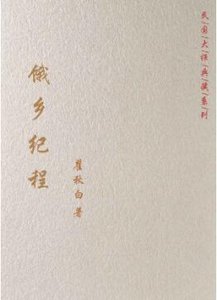 民|国|大|师|典|藏|系|列
俄乡纪程
瞿秋白著